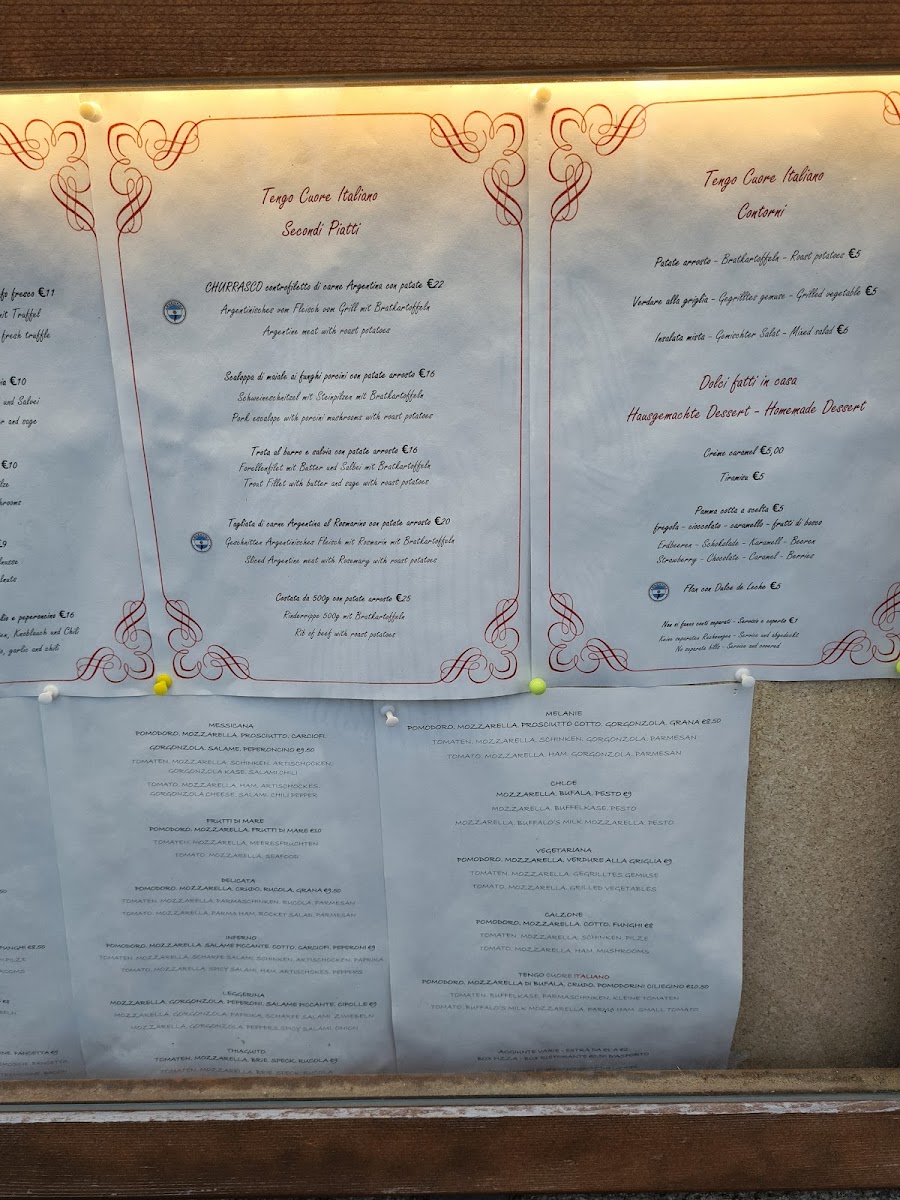 fo fresco €11
mit Truffel
fresh truffle
ia €10
und Salvei
er and sage
€10
ilze
hrooms
€9
lnusse
lnuts
lio e peperoncino €16
en, Knoblauch und Chili
o, garlic and chili
Tengo Cuore Italiano
Secondi Piatti
CHURRASCO controfiletto di carne Argentina con patate €22
Argentinisches vom Fleisch vom Grill mit Bratkartoffeln
Argentine meat with roast potatoes
Scaloppa di maiale ai funghi porcini con patate arrosto €16
Schweineschnitsel mit Steinpilzen mit Bratkartoffeln
Pork escalope with porcini mushrooms with roast potatoes
Trota al burro e salvia con patate arrosto €16
Forellenfilet mit Butter und Salbei mit Bratkartoffeln
Trout Fillet with butter and sage with roast potatoes
Tagliata di carne Argentina al Rosmarino con patate arrosto €20
Geschnitten Argentinisches Fleisch mit Rosmarin mit Bratkartoffeln
Sliced Argentine meat with Rosemary with roast potatoes
Costata da 500g con patate arrosto €25
Rinderrippe 500g mit Bratkartoffeln
Rib of beef with roast potatoes
Tengo Cuore Italiano
Contorni
Patate arrosto - Bratkartoffeln - Roast potatoes €5
Verdure alla griglia - Gegrilltes gemuse - Grilled vegetable €5
Insalata mista - Gemischter Salat - Mixed salad €6
Dolci fatti in casa
Hausgemachte Dessert - Homemade Dessert
Crème caramel €5,00
Tiramisu €5
Panna cotta a scelta €5
fregola - cioccolato - caramello - frutti di bosco
Erdbeeren - Schokolade - Karamell - Beeren
Strawberry - Chocolate - Caramel - Berries
Flan con Dulce de Leche €5
Non si fanno conti separati - Servizio e coperto €1
Keine separaten Rechnungen - Service und abgedeckt
No separate bills - Service and covered
MESSICANA
POMODORO, MOZZARELLA, PROSCIUTTO, CARCIOFI,
GORGONZOLA, SALAME, PEPERONCINO €9.50
TOMATEN, MOZZARELLA, SCHINKEN, ARTISCHOCKEN,
GORGONZOLA KASE, SALAMI CHILI
TOMATO, MOZZARELLA, HAM, ARTISCHOCKES,
GORGONZOLA CHEESE, SALAMI, CHILI PEPPER
FRUTTI DI MARE
POMODORO, MOZZARELLA, FRUTTI DI MARE €10
TOMATEN, MOZZARELLA, MEERESFRUCHTEN
TOMATO, MOZZARELLA, SEAFOOD
DELICATA
POMODORO, MOZZARELLA, CRUDO, RUCOLA, GRANA €9.50
TOMATEN, MOZZARELLA, PARMASCHINKEN, RUCOLA, PARMESAN
TOMATO, MOZZARELLA, PARMA HAM, ROCKET SALAD, PARMESAN
INFERNO
POMODORO, MOZZARELLA, SALAME PICCANTE, COTTO, CARCIOFI, PEPERONI €9
TOMATEN, MOZZARELLA, SCHARFE SALAMI, SCHINKEN, ARTISCHOCKEN, PAPRIKA
TOMATO, MOZZARELLA, SPICY SALAMI, HAM, ARTISCHOKES, PEPPERS
LEGGERINA
MOZZARELLA, GORGONZOLA, PEPERONI, SALAME PICCANTE, CIPOLLE €9
MOZZARELLA, GORGONZOLA, PAPRIKA, SCHARFE SALAMI, ZWIEBELN
MOZZARELLA, GORGONZOLA, PEPPERS, SPICY SALAMI, ONION
THIAGUITO
TOMATEN, MOZZARELLA, BRIE, SPECK, RUCOLA €9
TOMATEN, MOZZARELLA, BRIE, SPECK, RUCOLA
MELANIE
POMODORO, MOZZARELLA, PROSCIUTTO COTTO, GORGONZOLA, GRANA €8.50
TOMATEN, MOZZARELLA, SCHINKEN, GORGONZOLA, PARMESAN
TOMATO, MOZZARELLA, HAM, GORGONZOLA, PARMESAN
CHLOE
MOZZARELLA, BUFALA, PESTO €9
MOZZARELLA, BUFFELKASE, PESTO
MOZZARELLA, BUFFALO'S MILK MOZZARELLA, PESTO
VEGETARIANA
POMODORO, MOZZARELLA, VERDURE ALLA GRIGLIA €9
TOMATEN, MOZZARELLA, GEGRILLTES GEMUSE
TOMATO, MOZZARELLA, GRILLED VEGETABLES
CALZONE
POMODORO, MOZZARELLA, COTTO, FUNGHI €8
TOMATEN, MOZZARELLA, SCHINKEN, PILZE
TOMATO, MOZZARELLA, HAM, MUSHROOMS
TENGO CUORE ITALIANO
POMODORO, MOZZARELLA DI BUFALA, CRUDO, POMODORINI CILIEGINO €10.50
TOMATEN, BUFFELKASE, PARMASCHINKEN, KLEINE TOMATEN
TOMATO, BUFFALO'S MILK MOZZARELLA, PARMA HAM, SMALL TOMATO
AGGIUNTE VARIE - EXTRA DA €1 A €2